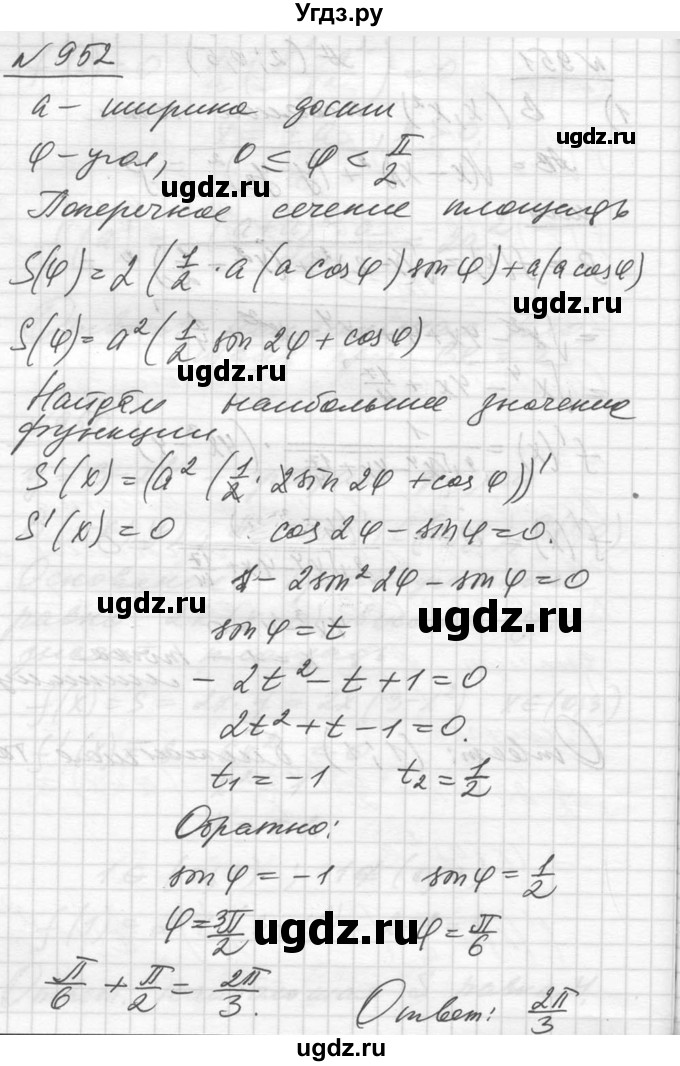 Угдз.ру
№ 952
a – ширина доски
φ – угол, 0 ≤ φ < π/2
ugdz.ru ugdz.ru
Поперечное сечение площадь
S(φ) = 2 (1/2 · a (a cosφ) sinφ) + a(a cosφ)
ugdz.ru
S(φ) = a² (1/2 sin 2φ + cosφ)
ugdz.ru
Найдём наибольшее значение
функции
S'(x) = (a² (1/2 · 2sin 2φ + cos φ))'
S'(x) = 0 cos 2φ – sinφ = 0.
1 – 2sin² 2φ – sinφ = 0
ugdz.ru ugdz.ru
sinφ = t
– 2t² – t + 1 = 0
2t² + t – 1 = 0.
ugdz.ru
t₁ = –1 t₂ = 1/2
Обратно:
sinφ = –1 sinφ = 1/2
ugdz.ru
φ = 3π/2 φ = π/6
π/6 + π/2 = 2π/3.
Ответ: 2π/3
ugdz.ru
ugdz.ru